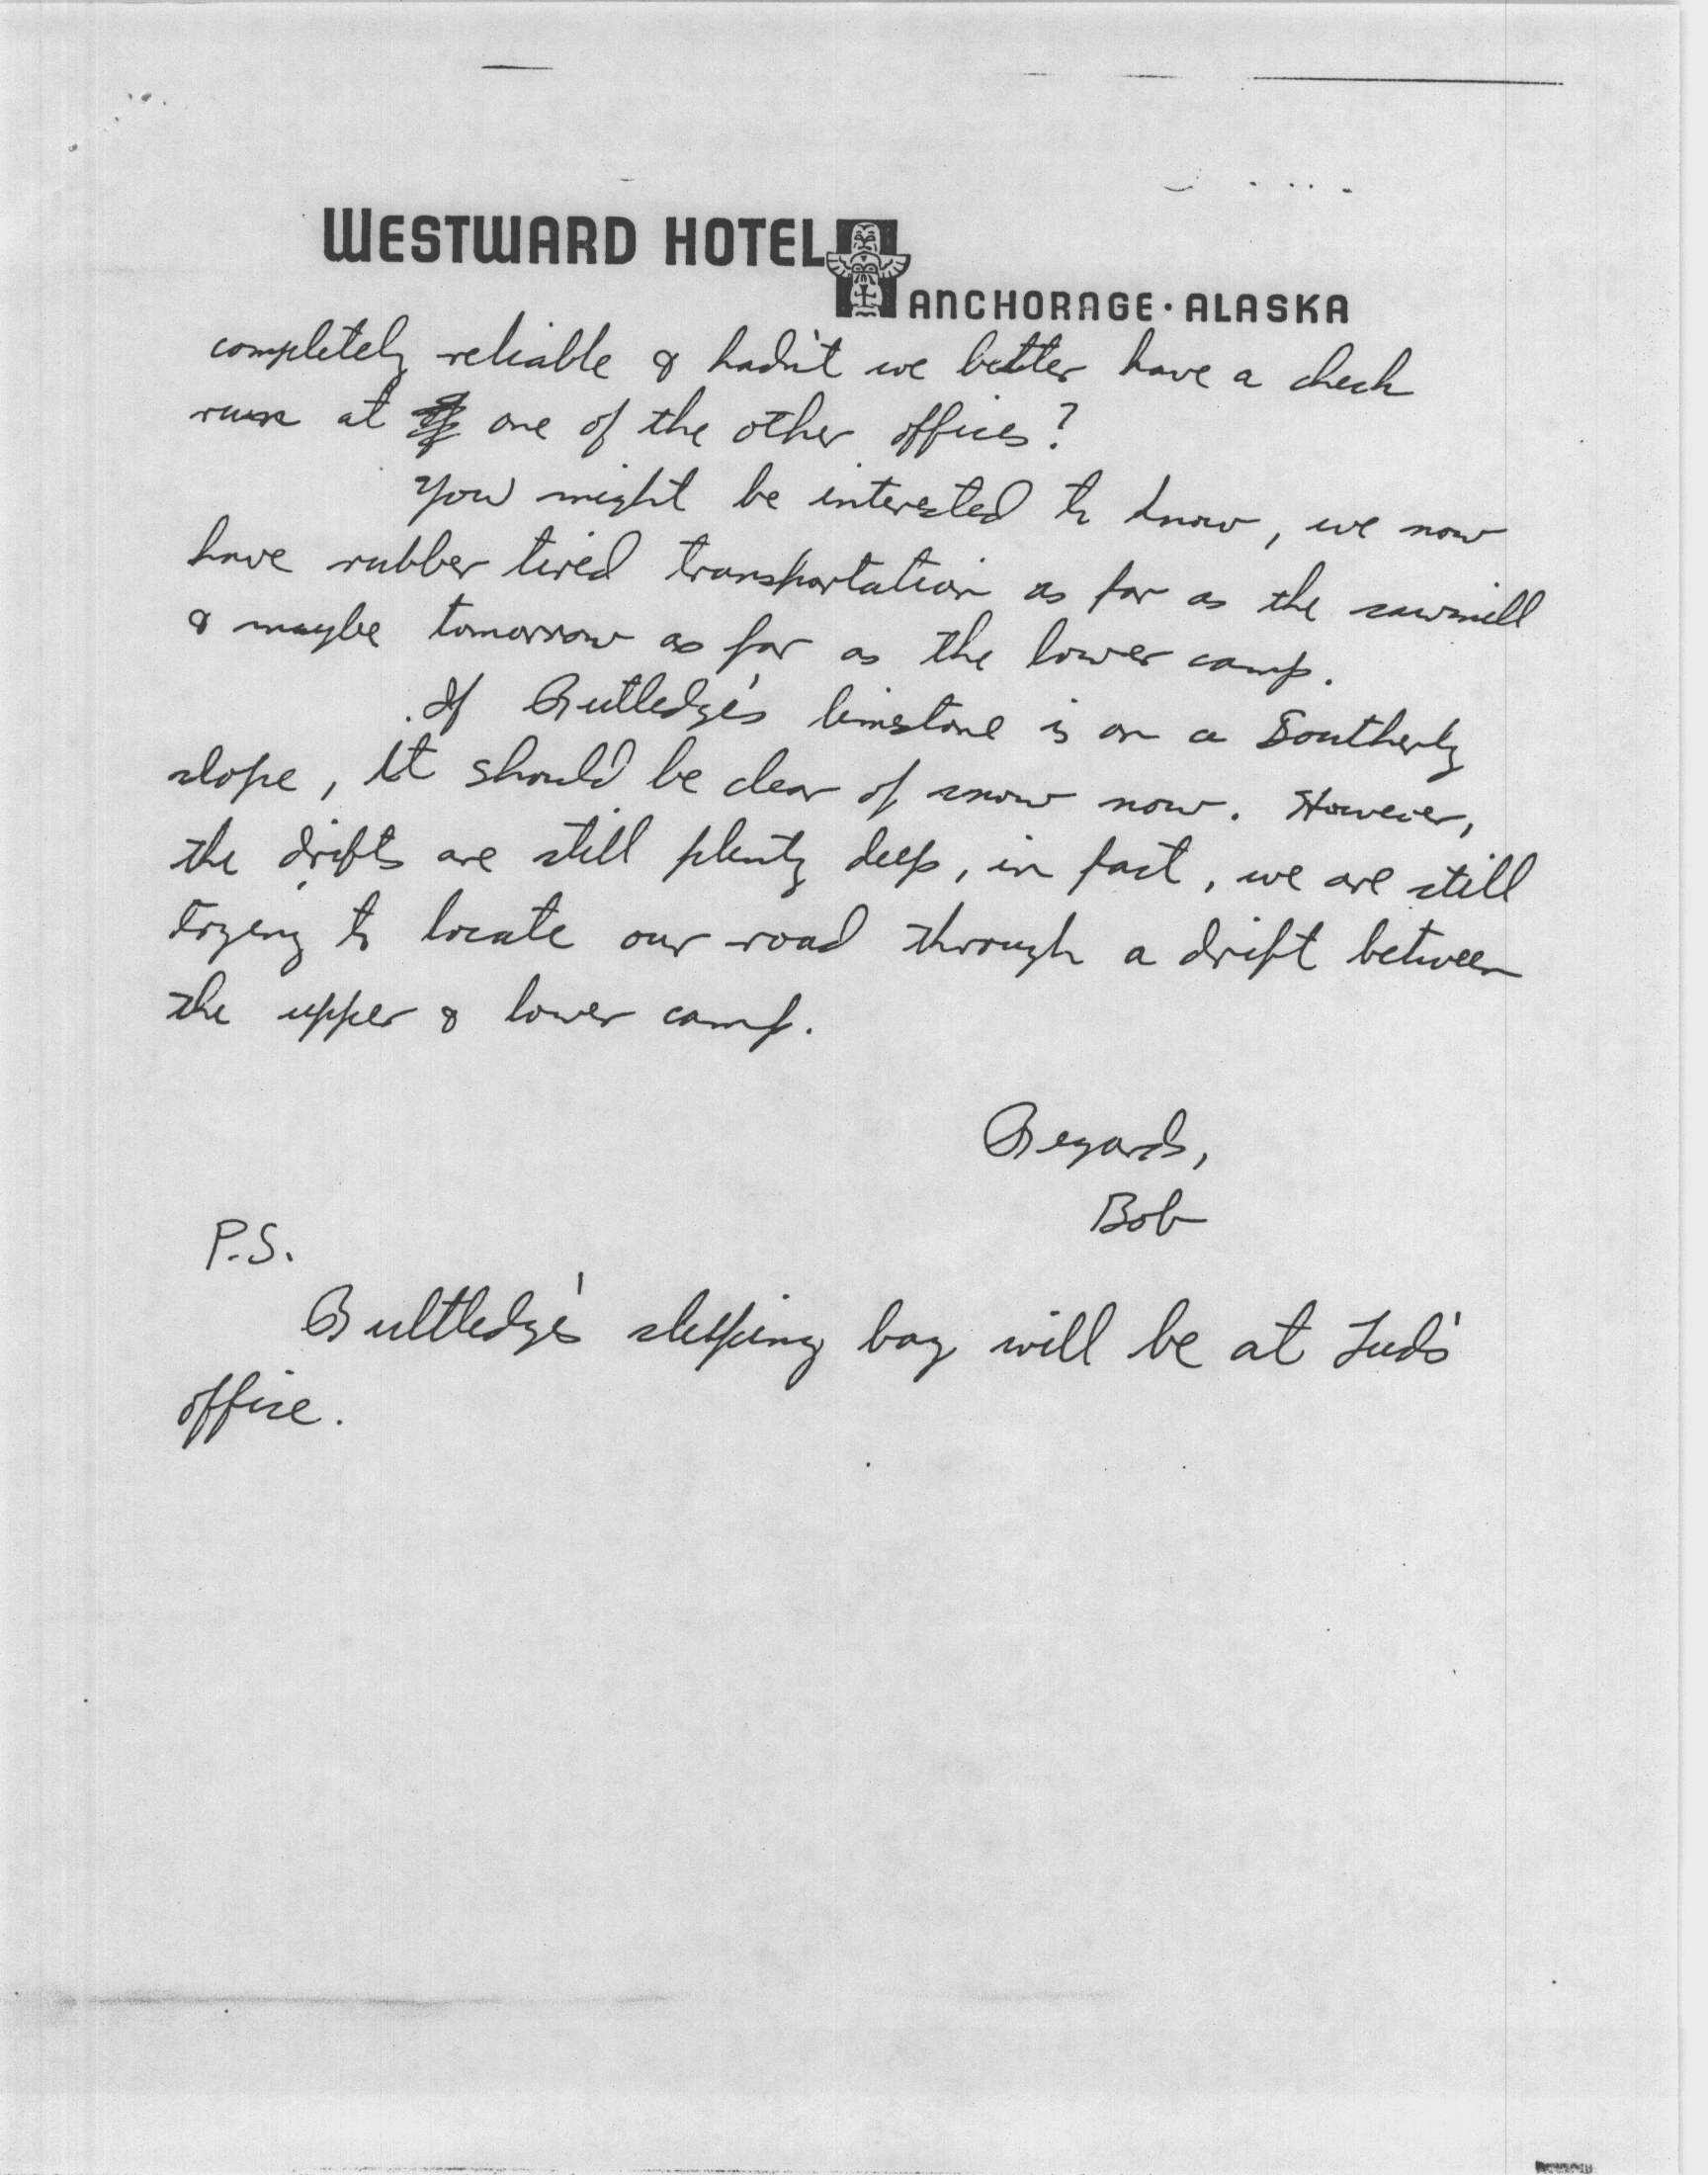 WESTWARD HOTEL
ANCHORAGE · ALASKA
completely reliable & hadn't we better have a check
run at one of the other offices?
You might be interested to know, we now
have rubber tired transportation as far as the sawmill
& maybe tomorrow as far as the lower camp.
If Rutledge's limestone is on a Southerly
slope, it should be clear of snow now. However,
the drifts are still plenty deep, in fact, we are still
trying to locate our road through a drift between
the upper & lower camp.
Regards,
Bob
P.S.
Rultledge's sleeping bag will be at
office.